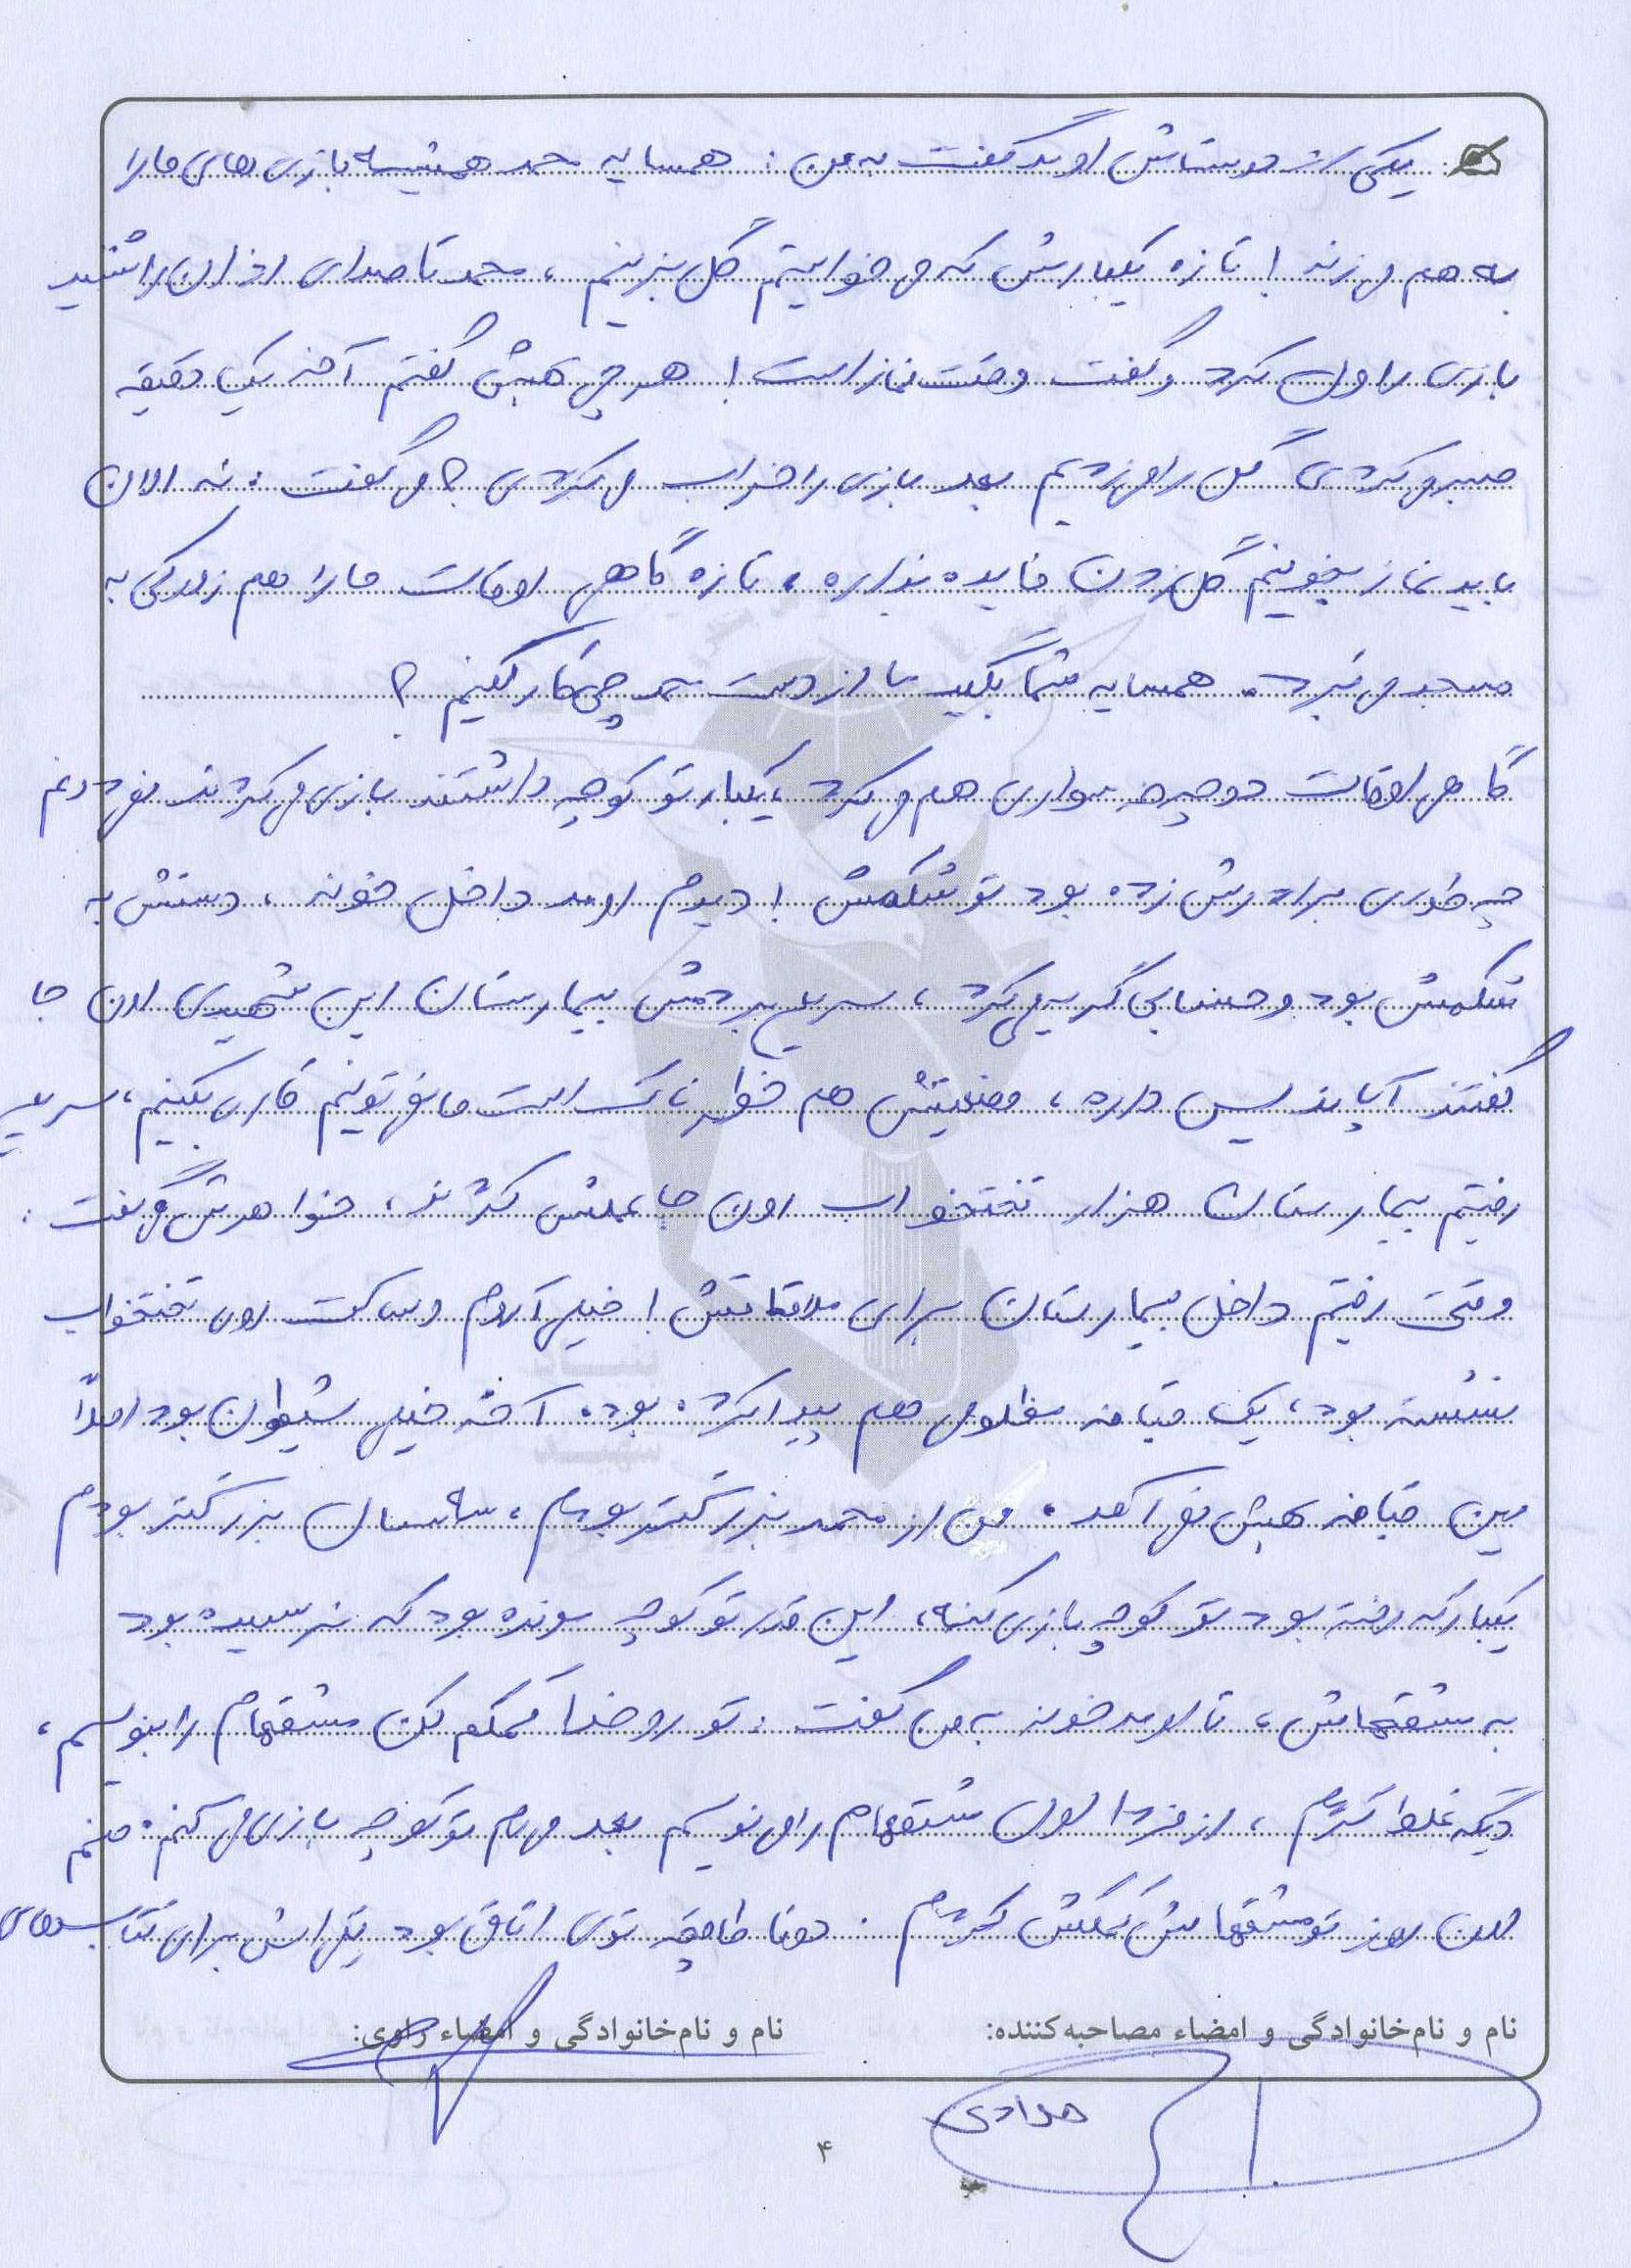 یکی از دوستاش اومد گفت به من : همسایه محمد همیشه بازی های ما را
به هم می زند ! تازه یکبارش که می خواستیم گل بزنیم ، محمد تا صدای اذان را شنید
بازی را ول کرد و گفت وقت نماز است ! هر چی بهش گفتم آخه یک دقیقه
صبر می کردی گل را می زدیم بعد بازی را خراب می کردی ؟ می گفت : نه الان
باید نماز بخونیم گل زدن فایده نداره ، تازه گاهی اوقات ما را هم زورکی به
مسجد می بَرد . همسایه شما بگید ما از دست محمد چی کار کنیم ؟
گاهی اوقات دوچرخه سواری هم می کرد ، یکبار تو کوچه داشتند بازی می کردند نمی دونم
چه طوری برادرش زده بود تو شکمش ! دیدم اومد داخل خونه ، دستش به
شکمش بود و حسابی گریه می کرد ، سریع بردمش بیمارستان این شهیدی اون جا
گفتند آپاندیس داره ، وضعیتش هم خطرناک است ما نمی تونیم کاری بکنیم ، سریع
رفتیم بیمارستان هزار تختخواب اون جا عملش کردند ، خواهرش می گفت :
وقتی رفتم داخل بیمارستان برای ملاقاتش ! خیلی آروم و ساکت روی تختخواب
نشسته بود ، یک قیافه مظلومی هم پیدا کرده بود . آخه خیلی شیطون بود اصلاً
این قیافه بهش نمی آمد . من از محمد بزرگتر بودم ، سه سال بزرگتر بودم
یکبار که رفته بود تو کوچه بازی کنه ، این قدر تو کوچه مونده بود که نرسیده بود
به مشقهاش ، تا اومد خونه به من گفت : تو رو خدا کمکم کن مشقهام را بنویسم ،
دیگه غلط کردم ، از فردا اول مشقهام را می نویسم بعد می رم تو کوچه بازی می کنم . منم
اون روز تو مشقهاش کمکش کردم . دوتا طاقچه توی اتاق بود یکی اش برای کتاب های
نام و نام خانوادگی و امضاء مصاحبه کننده:
نام و نام خانوادگی و امضاء راوی:
۴